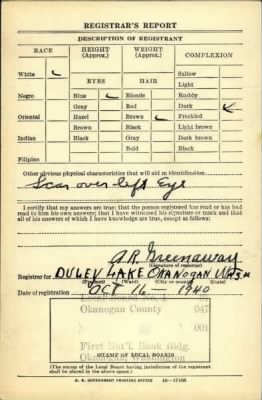 REGISTRAR'S REPORT
DESCRIPTION OF REGISTRANT
RACE
HEIGHT
(Approx.)
WEIGHT
(Approx.)
COMPLEXION
White
EYES
HAIR
Sallow
Light
Negro
Blue
Blonde
Ruddy
Gray
Red
Dark
Oriental
Hazel
Brown
Freckled
Brown
Black
Light brown
Indian
Black
Gray
Dark brown
Bald
Black
Filipino
Other obvious physical characteristics that will aid in identification
Scar over left Eye
I certify that my answers are true; that the person registered has read or has had read to him his own answers; that I have witnessed his signature or mark and that all of his answers of which I have knowledge are true, except as follows:
A.R. Greenaway
(Signature of registrar)
Registrar for DULEY LAKE OKANOGAN WASH
(Precinct) (Ward) (City or county) (State)
Date of registration OCT 16 1940
Local Board No. 1
Okanogan County 047
001
First Nat'l Bank Bldg.
Okanogan, Washington
(STAMP OF LOCAL BOARD)
(The stamp of the Local Board having jurisdiction of the registrant shall be placed in the above space.)
U. S. GOVERNMENT PRINTING OFFICE 16—17105